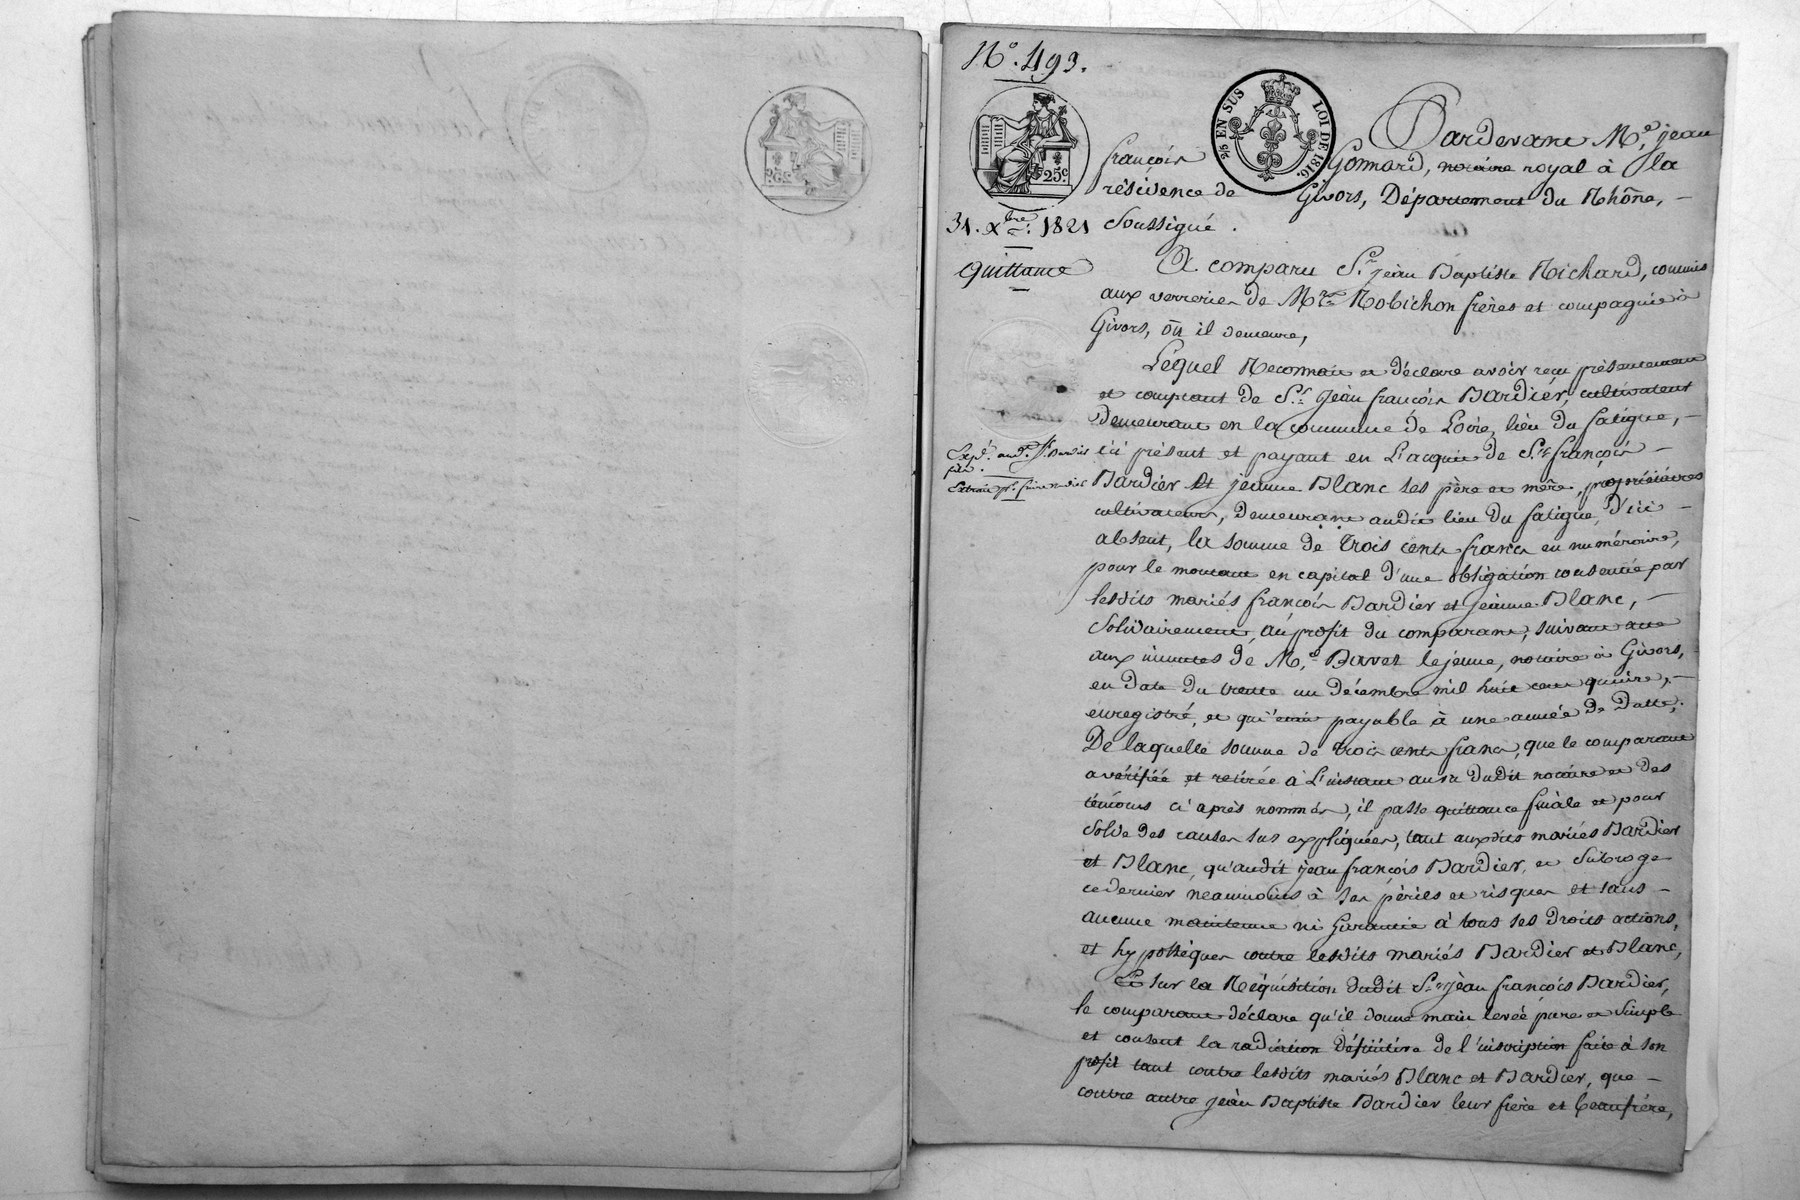 N.º 493.
25c
2/5 EN SUS LOI DE 1816.
31. Xbre. 1821
quittance
Pardevant Me. jean
françois Gonnard, notaire royal à la
résidence de Givors, Département du Rhône, –
soussigné.
A comparu Sr. jean Baptiste Richard, commis
aux verreries de Mrs. Robichon frères et compagnie à
Givors, où il demeure,
Lequel Reconnait et déclare avoir reçu présentement
et comptant de Sr. jean françois Bardier, cultivateur
demeurant en la commune de Loire, lieu du fatigue, –
ici présent et payant en L'acquit de Srs. françois –
Bardier et jeanne Blanc ses père et mère, propriétaires
cultivateurs, demeurant audit lieu du fatigue, d'ici –
absent, la somme de trois cents francs en numéraire,
pour le montant en capital d'une obligation consentie par
lesdits mariés françois Bardier et jeanne Blanc, –
Solidairement, au profit du comparant, suivant acte
aux minutes de Me. Bavet lejeune, notaire à Givors,
en date du trente un décembre mil huit cent quinze, –
enregistré, et qu'était payable à une année de Datte;
De laquelle somme de trois cents francs, que le comparant
a vérifiée et retirée à L'instant au vu dudit notaire et des
témoins ci après nommés, il passe quittance finale et pour
solde des causes sus expliquées, tant auxdits mariés Bardier
et Blanc, qu'audit jean françois Bardier, et subroge
ce dernier néanmoins à ses périls et risques et sans –
aucune maintenue ni Garantie à tous ses droits actions,
et hypothèques contre lesdits mariés Bardier et Blanc,
Et sur la Réquisition dudit Sr. jean françois Bardier,
le comparant déclare qu'il donne main levée pure et simple
et consent la radiation définitive de l'inscription faite à son
profit tant contre lesdits mariés Blanc et Bardier, que –
contre autre jean Baptiste Bardier leur frère et beaufrère,